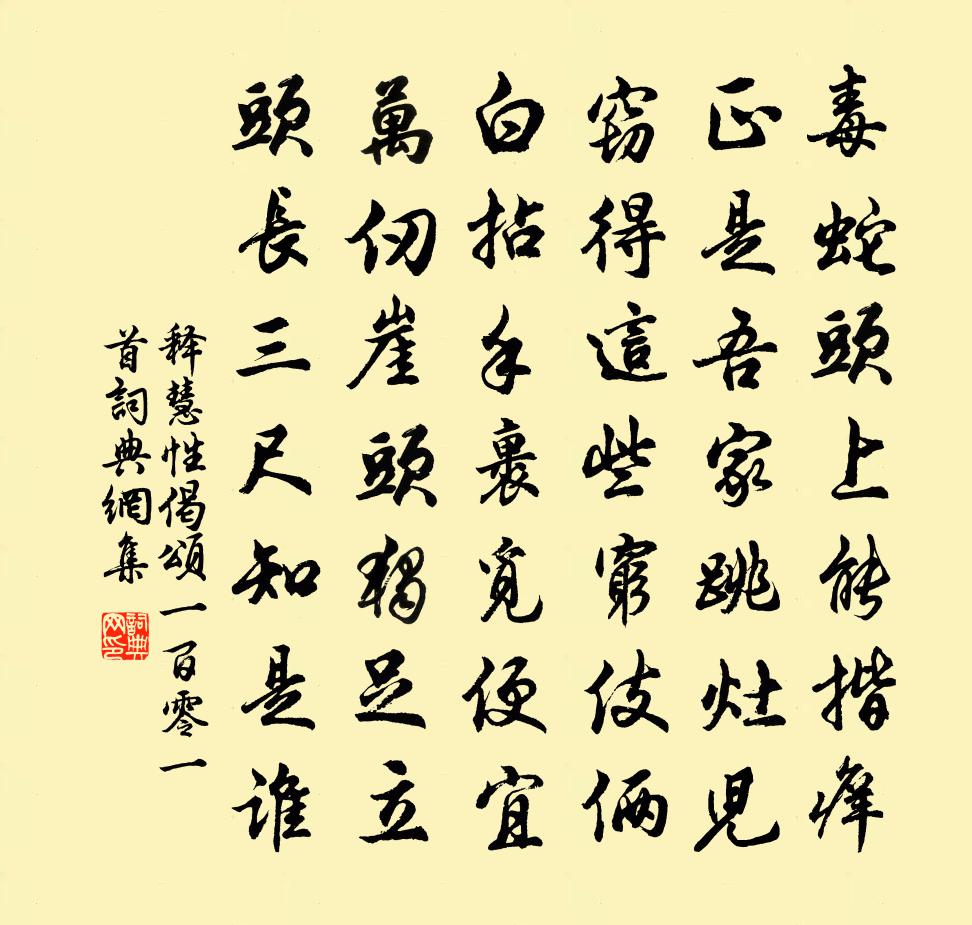 毒蛇頭上能揩癢
正是吾家跳灶児
竊得這些窮伎倆
白拈手裏覓便宜
萬仞崖頭獨足立
頭長三尺知是誰
释慧性偈頌一百零一
首詞典網集
詞典
网印